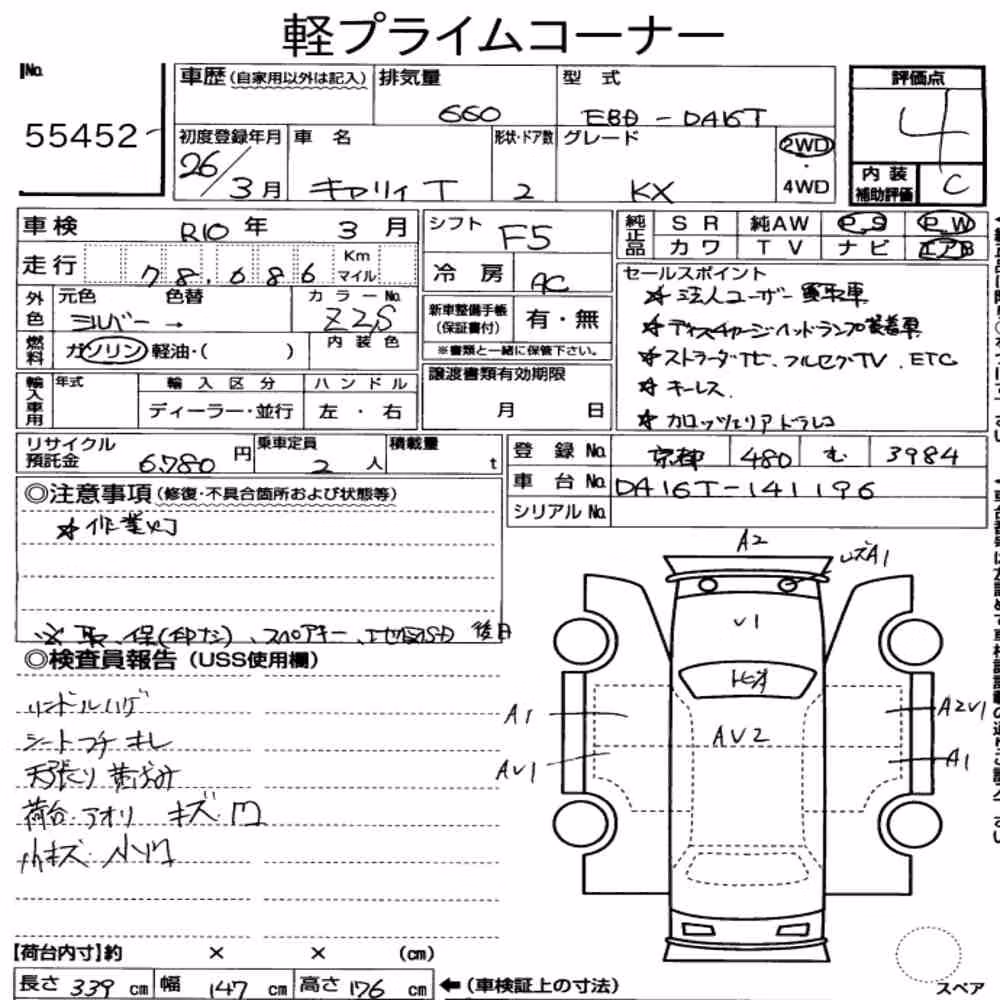 軽プライムコーナー
No. 55452
車歴(自家用以外は記入)
排気量 660
型式 EBD - DA16T
評価点 4
内装補助評価 C
初度登録年月 26/3月
車名 キャリィT
形状・ドア数 2
グレード KX
2WD・4WD
車検 R10年 3月
走行 78,686 Km マイル
シフト F5
冷房 AC
純正品 SR 純AW P.S P.W
カワ TV ナビ エアB
外色 元色 シルバー → 色替
カラーNo. Z2S
内装色
燃料 ガソリン 軽油・( )
新車整備手帳(保証書付) 有・無
※書類と一緒に保管下さい。
セールスポイント
☆法人ユーザー買取車
☆ディスチャージヘッドランプ装着車
☆ストラーダナビ、フルセグTV、ETC
☆キーレス
☆カロッツェリアドラレコ
輸入車用 年式
輸入区分 ディーラー・並行
ハンドル 左・右
譲渡書類有効期限 月 日
リサイクル預託金 6,780円
乗車定員 2人
積載量 t
登録No. 480 む 3984
車台No. DA16T-141196
シリアルNo.
◎注意事項(修復・不具合箇所および状態等)
☆作業灯
※取、保(印ナシ)、スペアキー、 後日
◎検査員報告(USS使用欄)
ハンドルハゲ
シートコゲ キレ
天張り黄ばみ
荷台・アオリ キズ凹
小キズ・小凹
A2
レズA1
V1
AV2
A1
AV1
A2V1
A1
【荷台内寸】約 × × (cm)
長さ 339 cm 幅 147 cm 高さ 176 cm ←(車検証上の寸法)
スペア